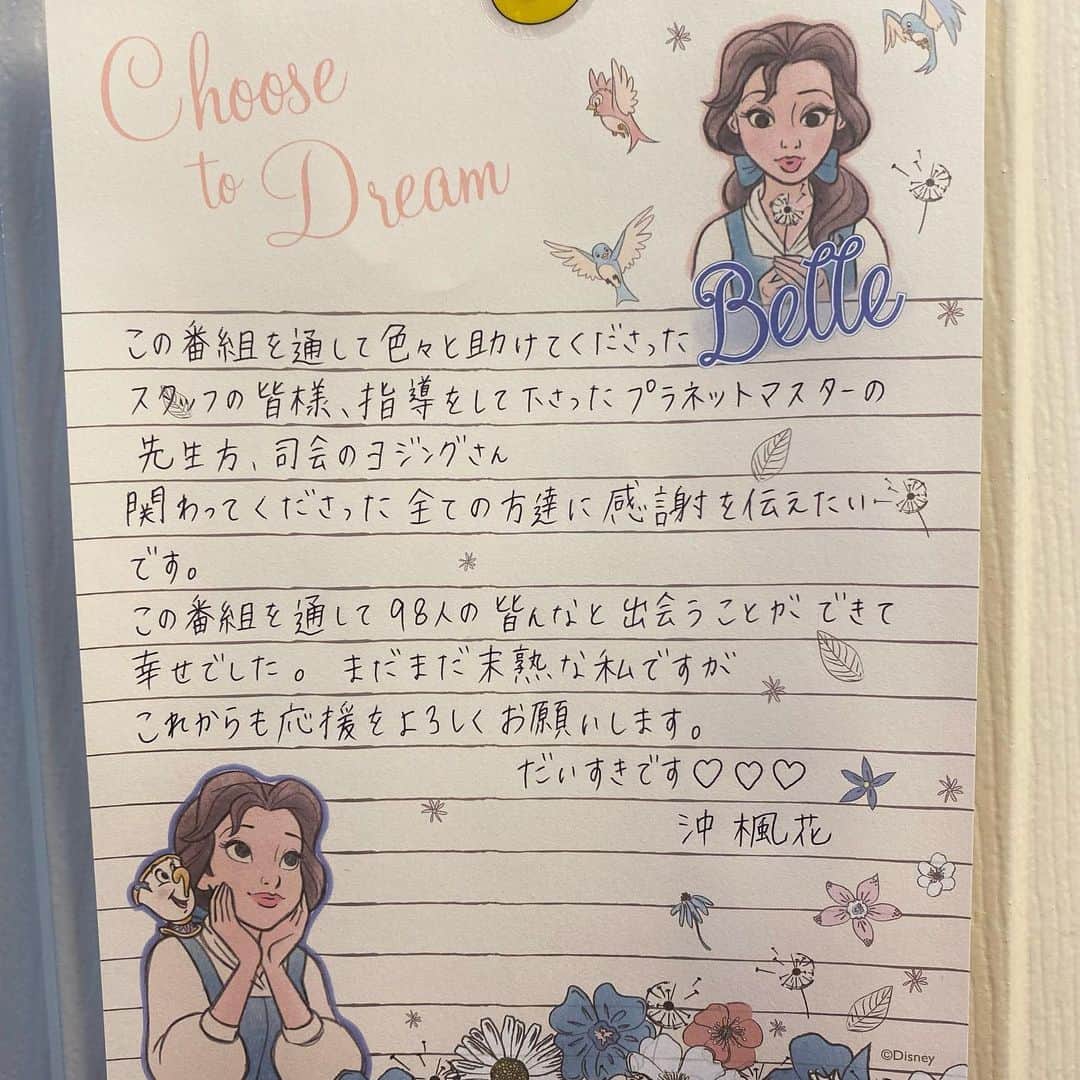 Choose
to Dream
Belle
この番組を通して色々と助けてくださった
スタッフの皆様、指導をして下さったプラネットマスターの
先生方、司会のヨジングさん
関わってくださった全ての方達に感謝を伝えたい
です。
この番組を通して98人の皆んなと出会うことができて
幸せでした。まだまだ未熟な私ですが
これからも応援をよろしくお願いします。
だいすきです♡♡♡
沖楓花
©Disney